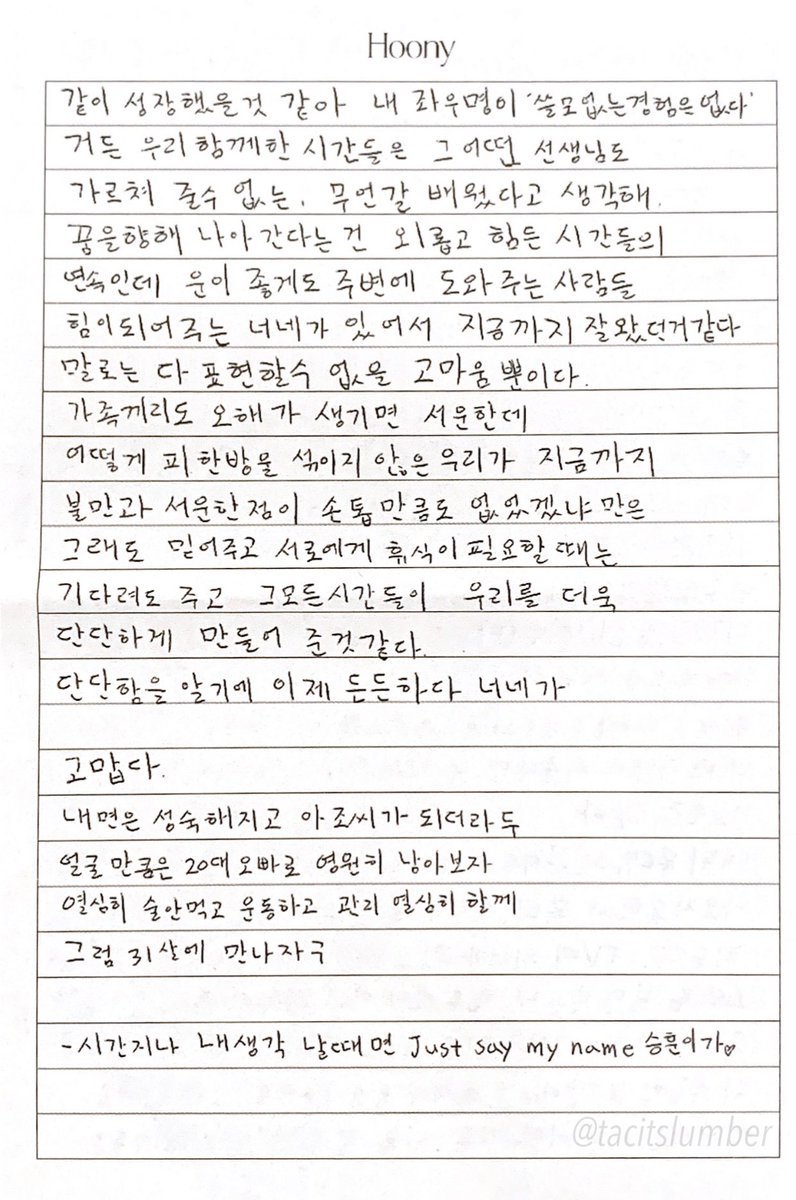 Hoony
같이 성장했을것 같아 내 좌우명이 '쓸모없는경험은없다'
거든 우리 함께한 시간들은 그 어떤 선생님도
가르쳐 줄수 없는, 무언갈 배웠다고 생각해.
꿈을향해 나아간다는건 외롭고 힘든 시간들의
연속인데 운이 좋게도 주변에 도와주는 사람들
힘이되어주는 너네가 있어서 지금까지 잘왔던거같다
말로는 다 표현할수 없을 고마움뿐이다.
가족끼리도 오해가 생기면 서운한데
어떻게 피한방울 섞이지 않은 우리가 지금까지
불만과 서운한점이 손톱만큼도 없었겠냐 만은
그래도 믿어주고 서로에게 휴식이 필요할때는
기다려도 주고 그모든시간들이 우리를 더욱
단단하게 만들어 준것같다.
단단함을 알기에 이제 든든하다 너네가
고맙다.
내면은 성숙해지고 아조씨가 되더라두
얼굴 만큼은 20대 오빠로 영원히 남아보자
열심히 술안먹고 운동하고 관리 열심히 할께
그럼 31살에 만나자구
- 시간지나 내생각 날때면 Just say my name 승훈이가♡
@tacitslumber